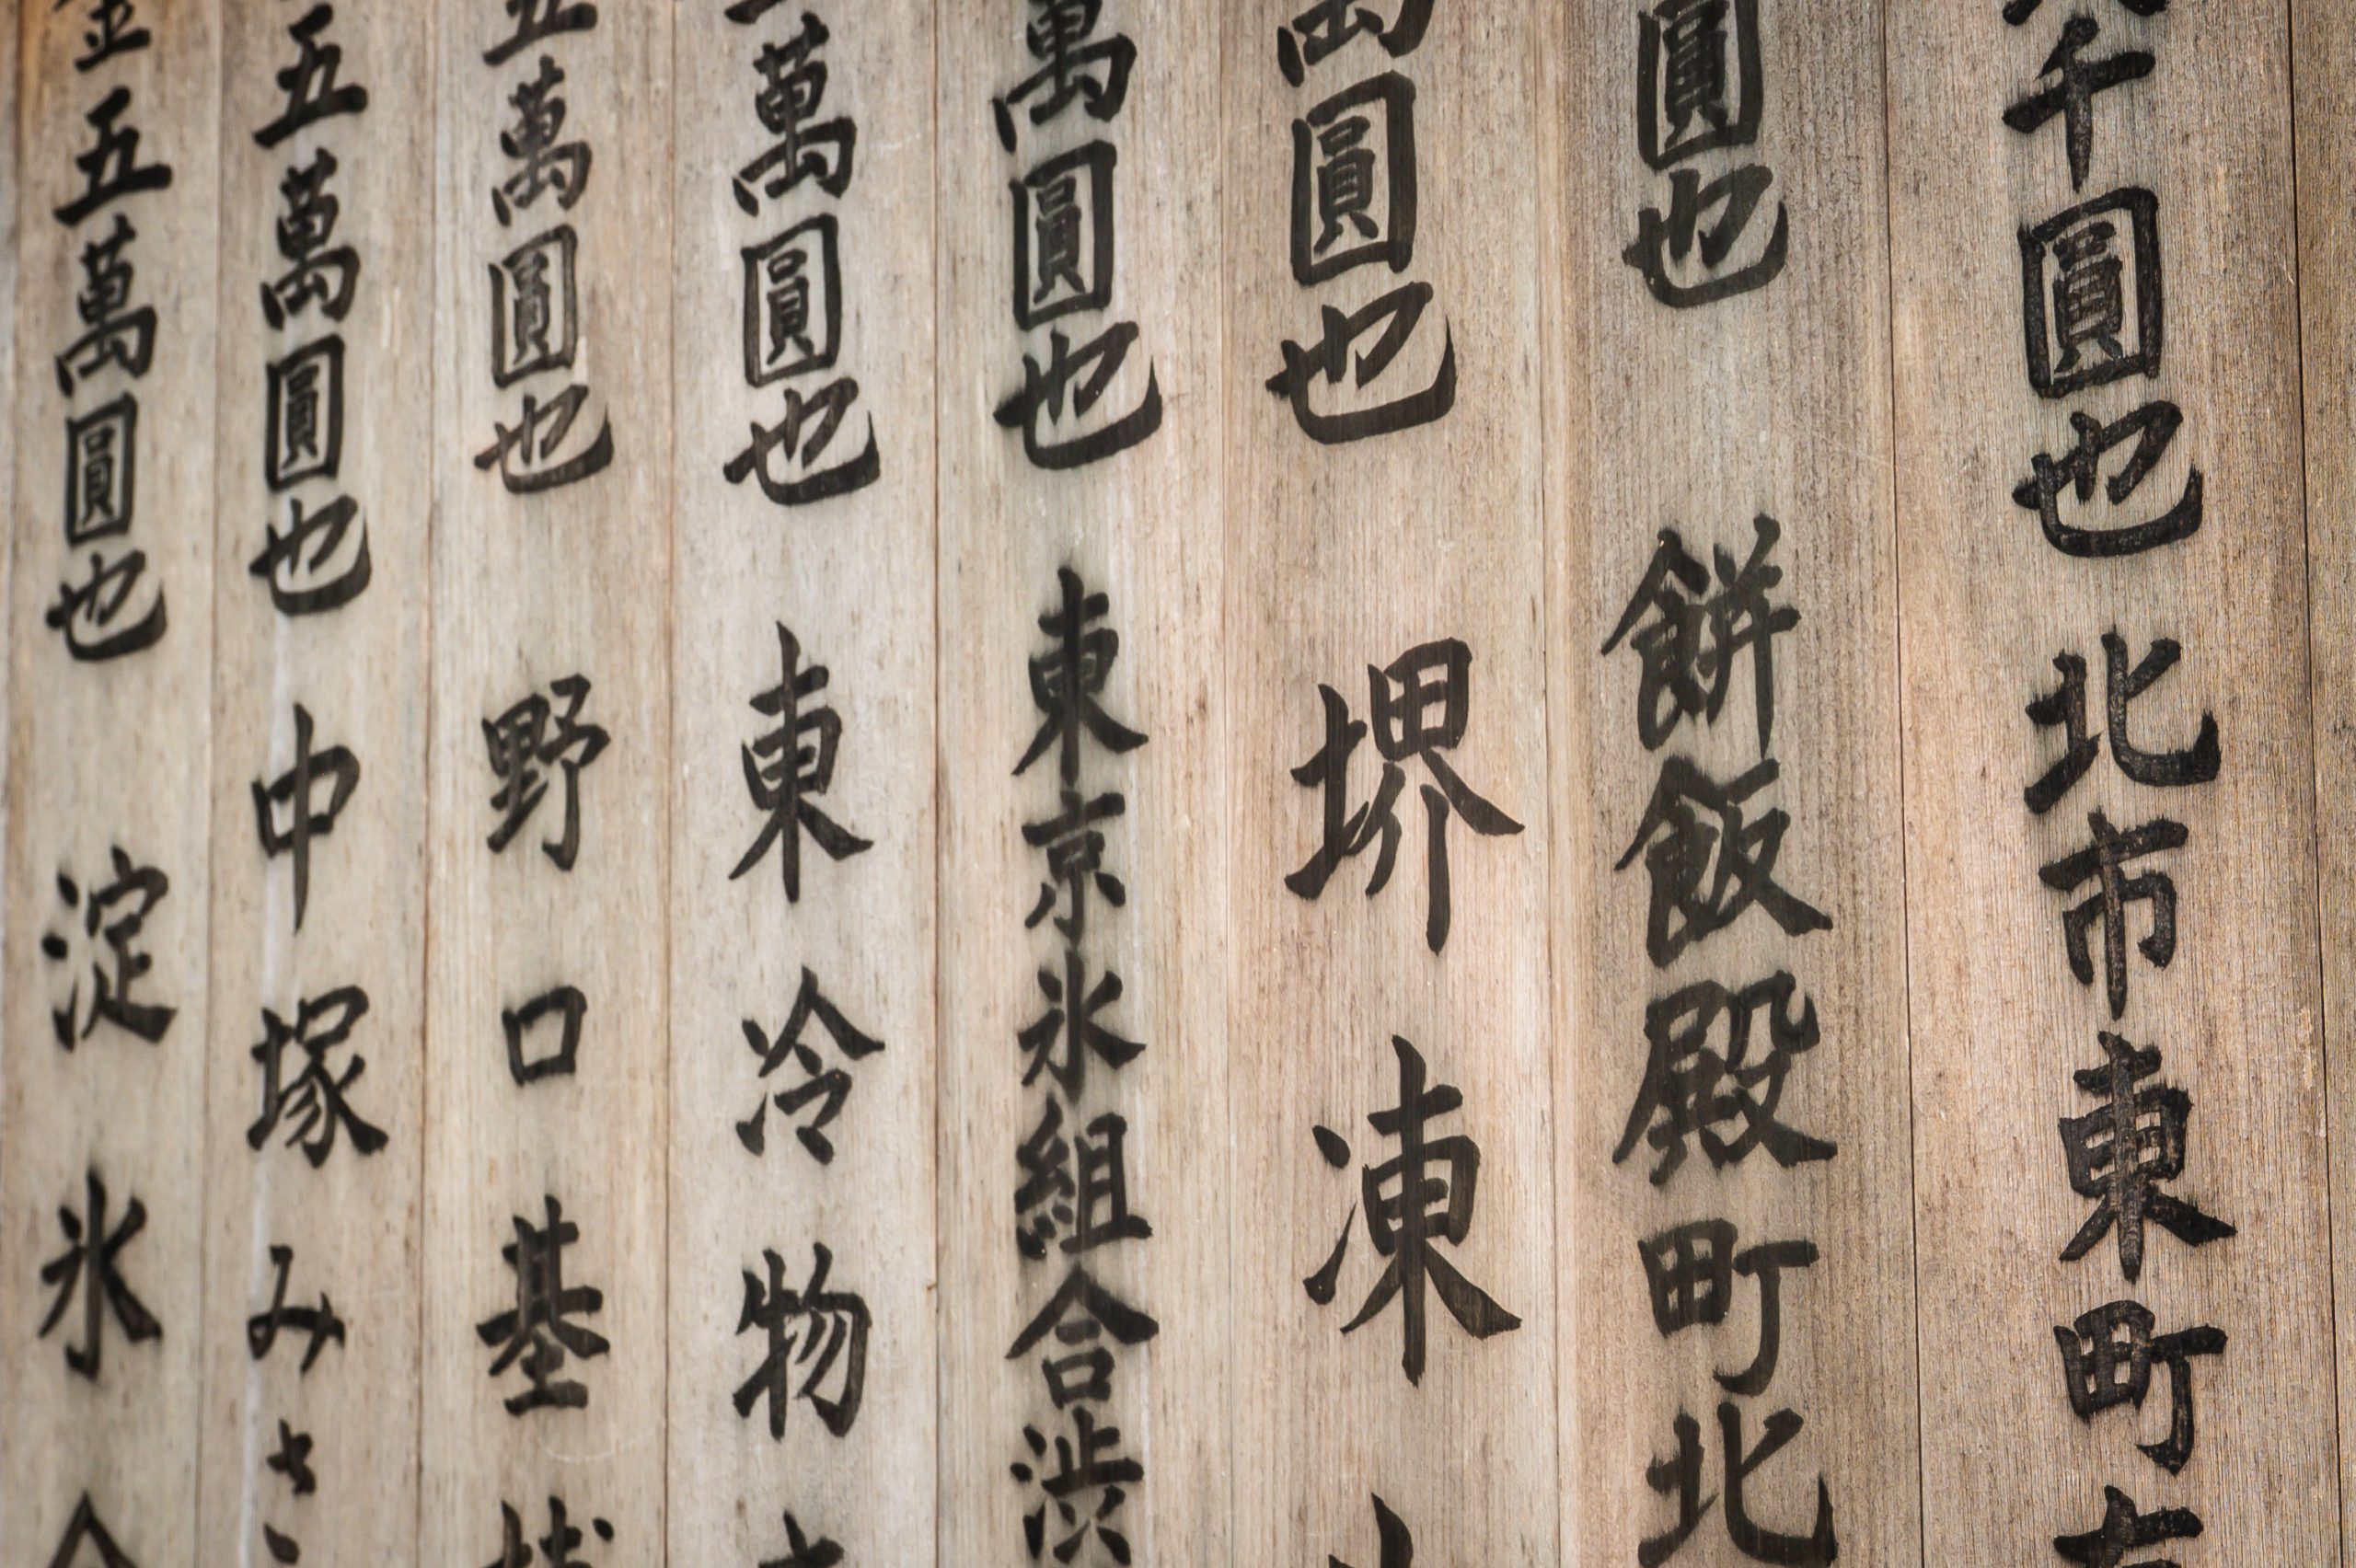 千圓也 北市東町
圓也 餅飯殿町北
萬圓也 堺凍
萬圓也 東京氷組合渋
萬圓也 東冷物
五萬圓也 野口基
五萬圓也 中塚みさ
金五萬圓也 淀氷